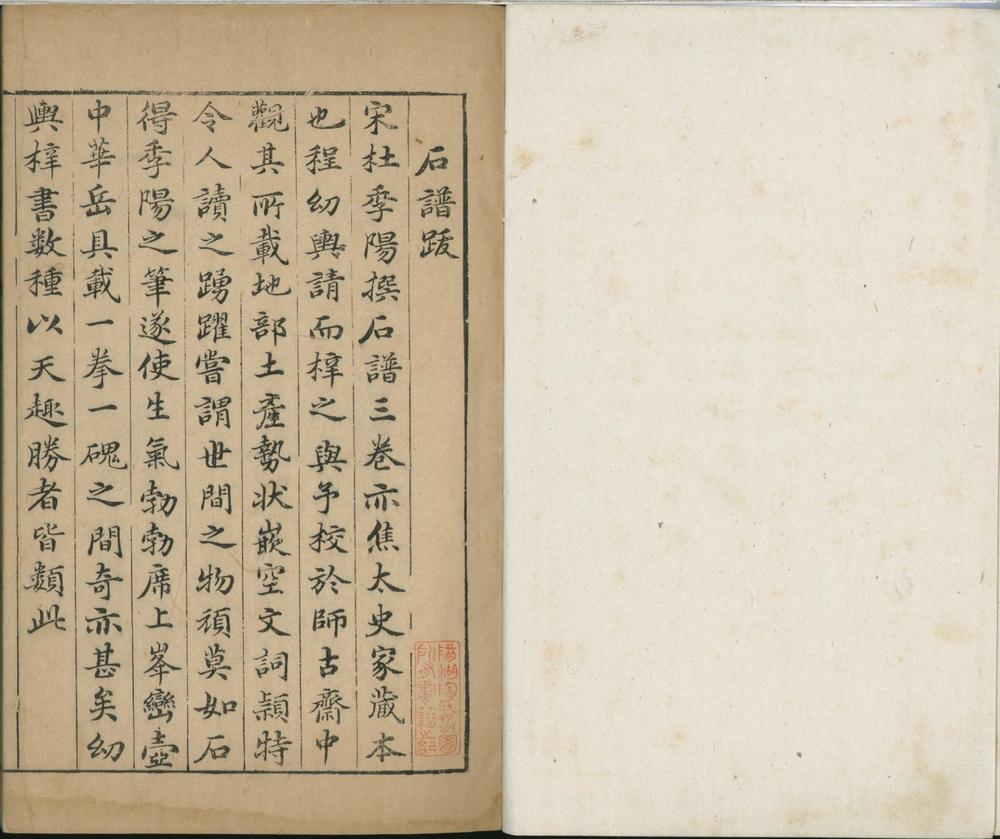 石譜跋
宋杜季陽撰石譜三卷亦焦太史家藏本
也程幼輿請而梓之與予校於師古齋中
觀其所載地部土產勢狀嵌空文詞頴特
令人讀之踴躍嘗謂世間之物頑莫如石
得季陽之筆遂使生氣勃勃席上峯巒壺
中華岳具載一拳一磈之間奇亦甚矣幼
輿梓書数種以天趣勝者皆類此
陽湖陶氏涉園
所有書籍之記